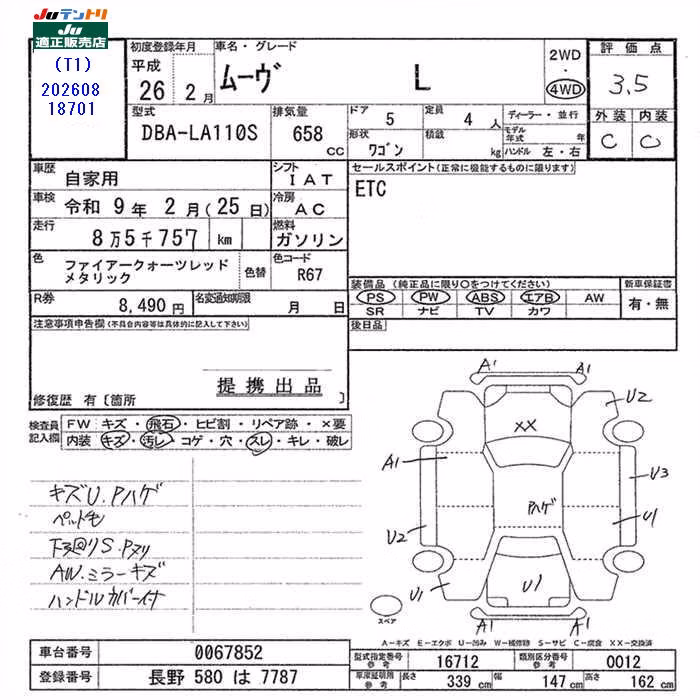 Juテントリ
Ju
適正販売店
(T1)
202608
18701
初度登録年月
平成
26 2月
車名・グレード
ムーヴ L
2WD
・
4WD
評価点
3.5
外装 内装
C C
型式
DBA-LA110S
排気量
658 cc
ドア 5
定員 4 人
形状 ワゴン
積載 kg
ディーラー・並行
モデル年式 年
ハンドル 左・右
車歴 自家用
シフト IAT
車検 令和 9年 2月(25日)
冷房 AC
走行 8万5千757 km
燃料 ガソリン
色 ファイアークォーツレッド
メタリック
色替
色コード R67
R券 8,490 円
名変通知期限 月 日
セールスポイント(正常に機能するものに限ります)
ETC
装備品(純正品に限り○をつけてください)
PS PW ABS エアB AW
SR ナビ TV カワ
新車保証書
有・無
後日品
注意事項申告欄(不具合内容等は具体的に記入して下さい)
提携出品
修復歴 有〔箇所 〕
検査員記入欄
FW キズ・飛石・ヒビ割・リペア跡・×要
内装 キズ・汚レ・コゲ・穴・スレ・キレ・破レ
キズU.Pハゲ
ペット毛
下廻りS.Pヌリ
AW.ミラーキズ
ハンドルカバーイナ
A1 A1
U2
XX
A1
U3
Pハゲ
U1
U2
U1
U1
A1 A1
スペア
A-キズ E-エクボ U-凹み W-補修跡 S-サビ C-腐食 XX-交換済
車台番号 0067852
登録番号 長野 580 は 7787
型式指定番号 参考 16712
類別区分番号 参考 0012
車庫証明用 参考 長さ 339 cm 幅 147 cm 高さ 162 cm